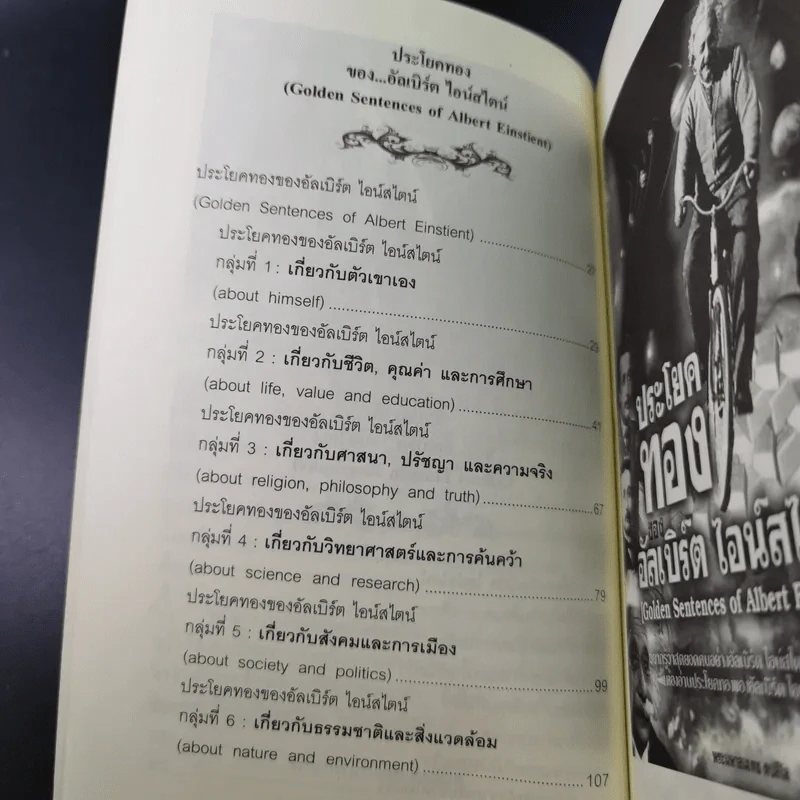 ประโยคทอง
ของ...อัลเบิร์ต ไอน์สไตน์
(Golden Sentences of Albert Einstient)
ประโยคทองของอัลเบิร์ต ไอน์สไตน์
(Golden Sentences of Albert Einstient)
ประโยคทองของอัลเบิร์ต ไอน์สไตน์
กลุ่มที่ 1 : เกี่ยวกับตัวเขาเอง
(about himself)
ประโยคทองของอัลเบิร์ต ไอน์สไตน์
กลุ่มที่ 2 : เกี่ยวกับชีวิต, คุณค่า และการศึกษา
(about life, value and education) 41
ประโยคทองของอัลเบิร์ต ไอน์สไตน์
กลุ่มที่ 3 : เกี่ยวกับศาสนา, ปรัชญา และความจริง
(about religion, philosophy and truth) 67
ประโยคทองของอัลเบิร์ต ไอน์สไตน์
กลุ่มที่ 4 : เกี่ยวกับวิทยาศาสตร์และการค้นคว้า
(about science and research) 79
ประโยคทองของอัลเบิร์ต ไอน์สไตน์
กลุ่มที่ 5 : เกี่ยวกับสังคมและการเมือง
(about society and politics) 99
ประโยคทองของอัลเบิร์ต ไอน์สไตน์
กลุ่มที่ 6 : เกี่ยวกับธรรมชาติและสิ่งแวดล้อม
(about nature and environment) 107
ประโยค
ทอง
ของ
อัลเบิร์ต
(Golden Sentences of Albert